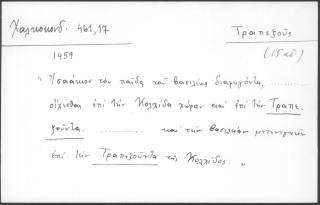 Χαλκοκονδ. 461,17
Τραπεζοῦς
(15 αἰ.)
1459
"Ἰσαάκιον τὸν παῖδα τοῦ βασιλέως διαφυγόντα, ..........
οἴχεσθαι ἐπὶ τὴν Κολχίδα χώραν καὶ ἐπὶ τὴν Τραπε-
ζοῦντα. .......... καὶ τὴν βασιλείαν μετενεγκεῖν
ἐπὶ τὴν Τραπεζοῦντα τῆς Κολχίδος. "